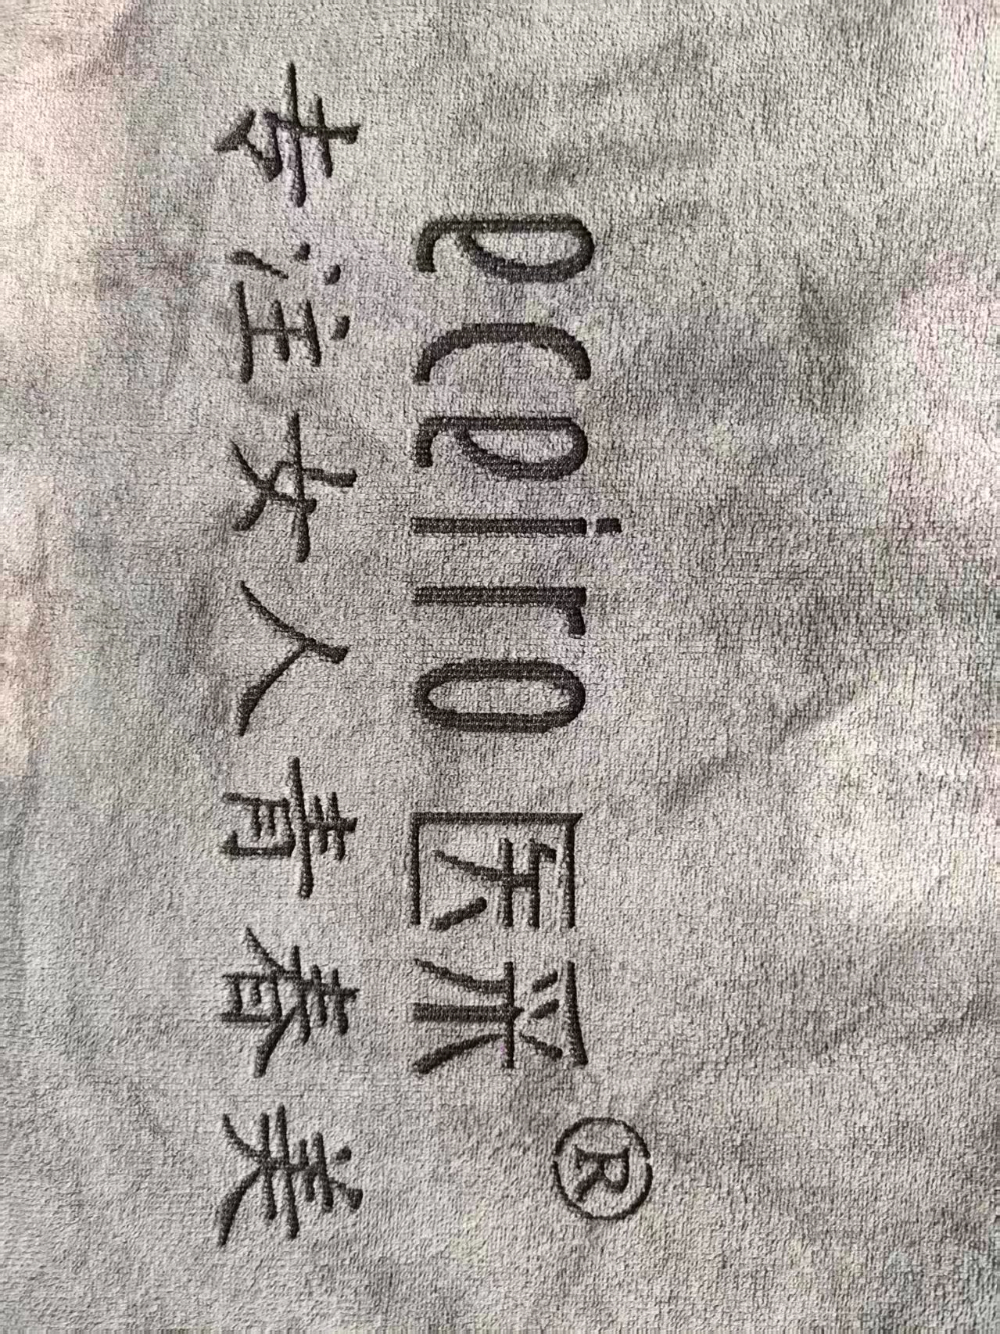 eceiro医采®
专注女人青春美